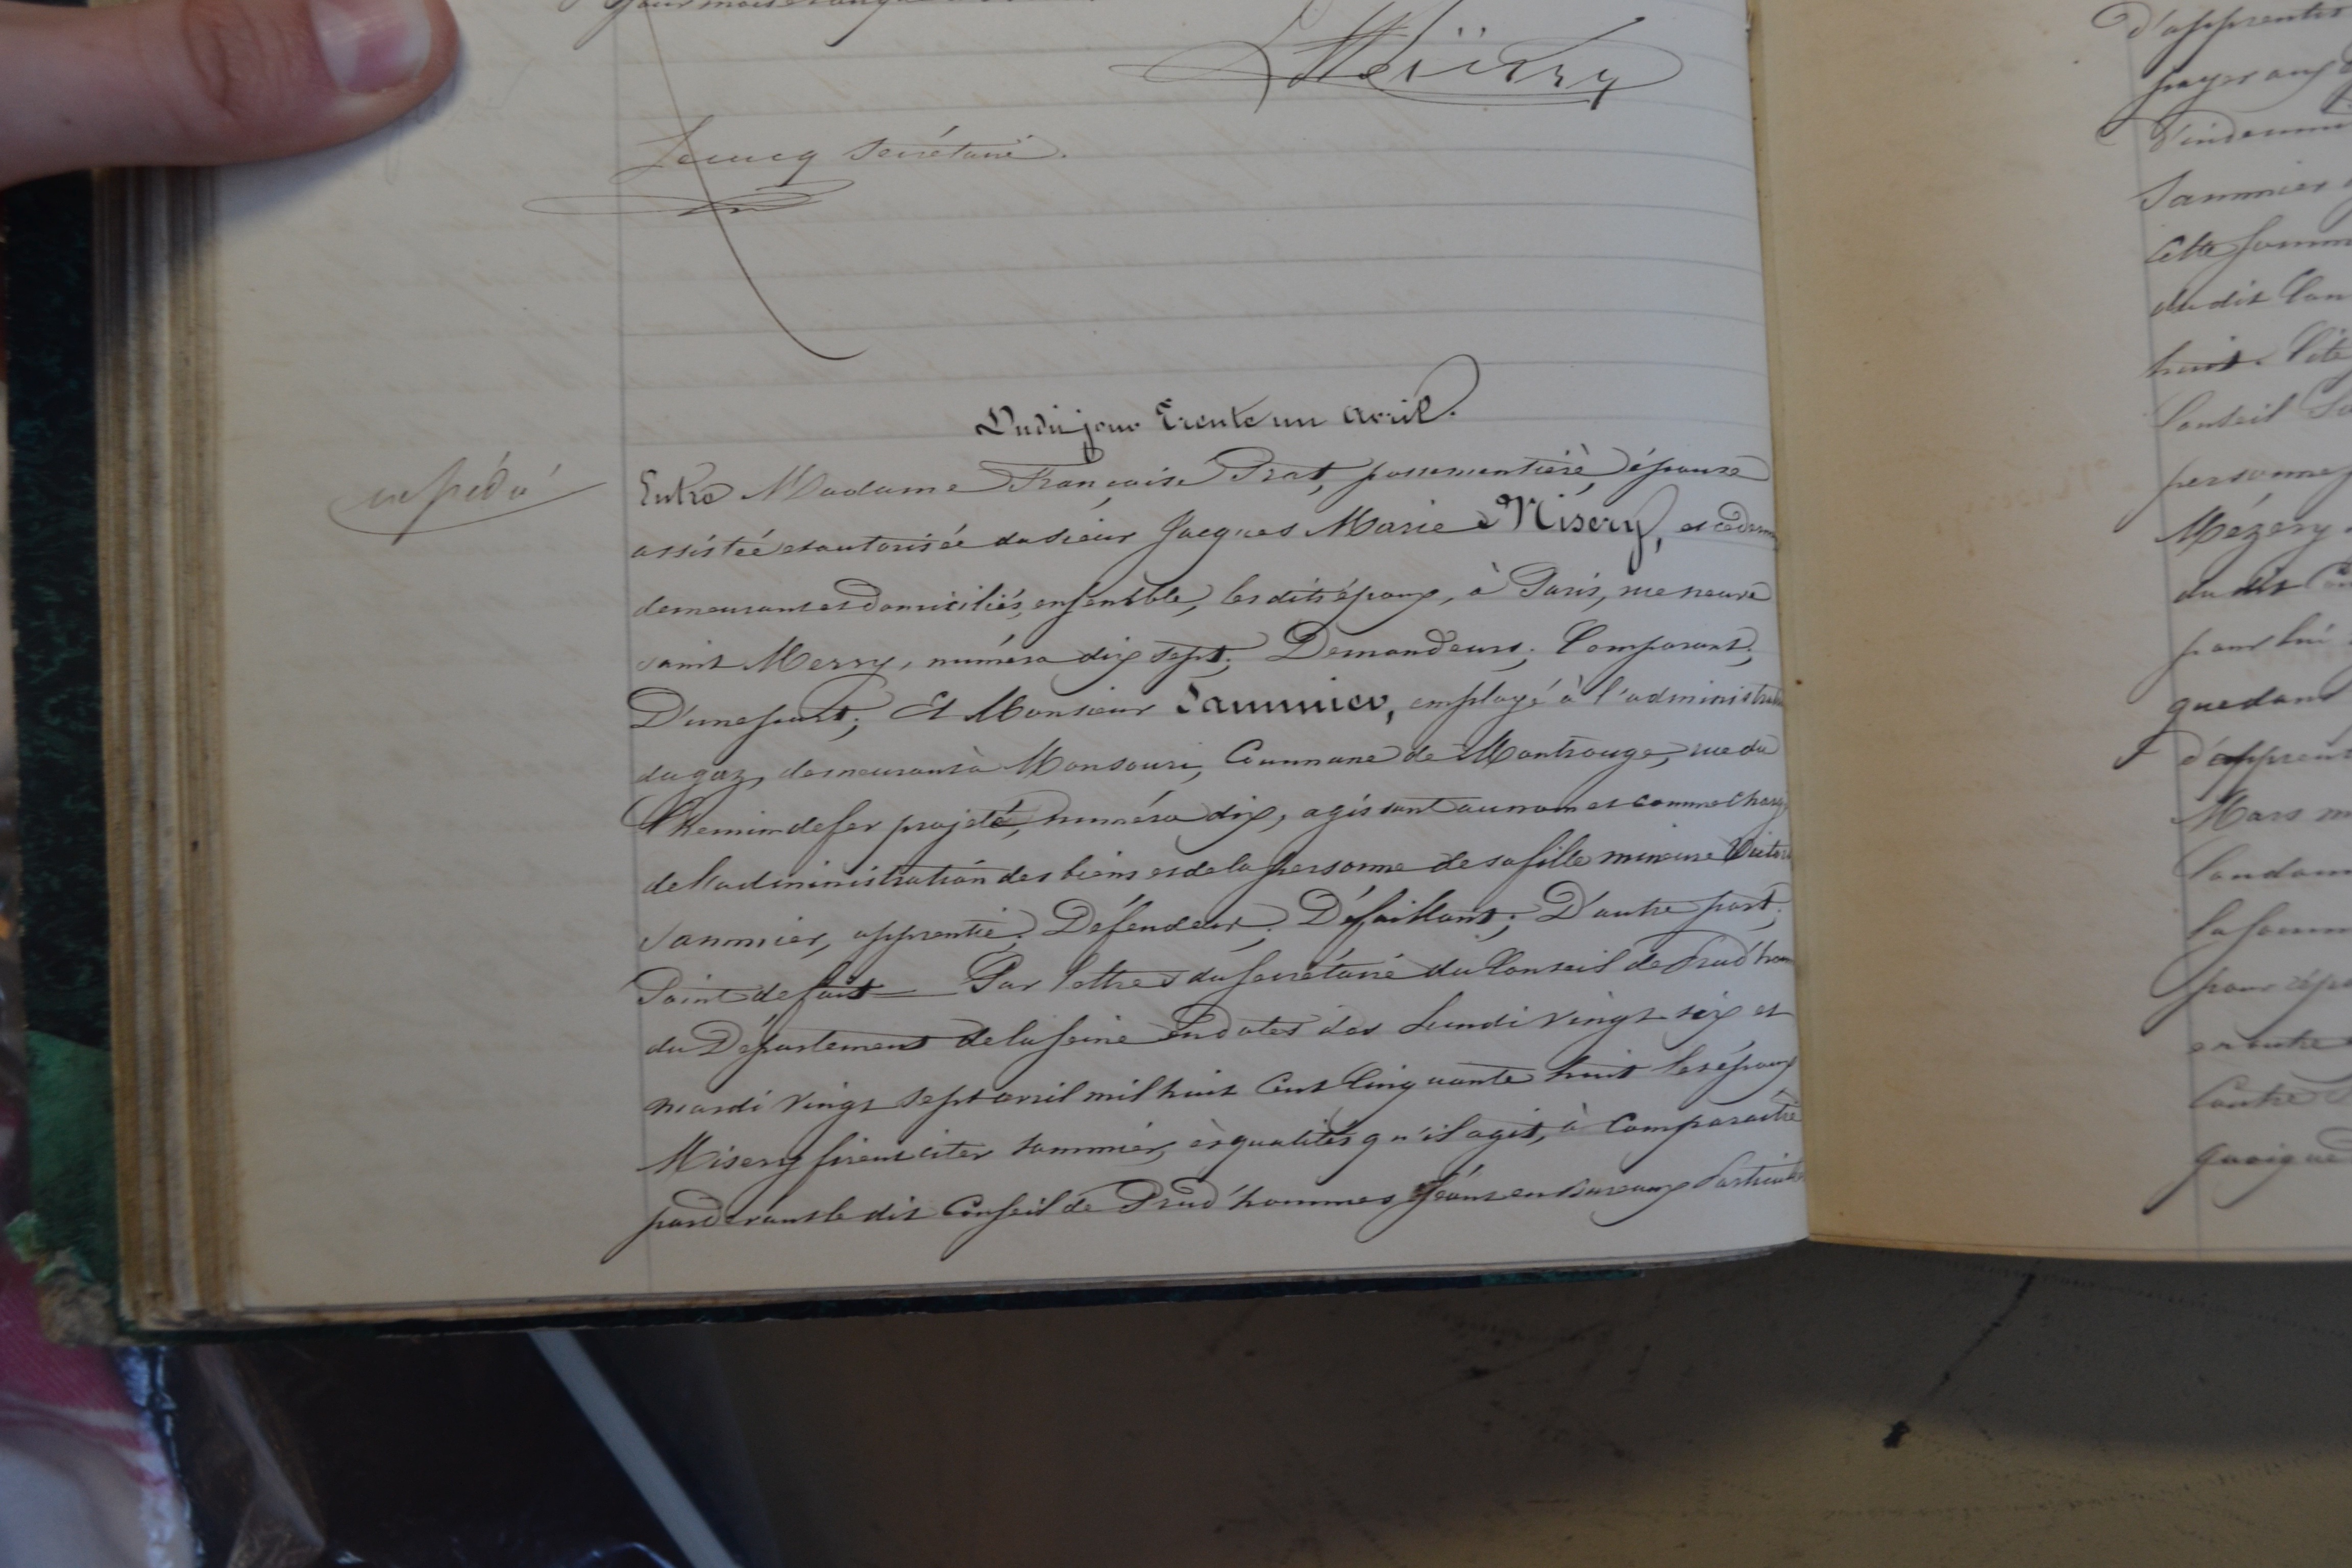 Lecucq secrétaire.
Dudit jour Trente un avril.
expédié
Entre Madame Françoise Prat, passementière, épouse
assistée et autorisée du sieur Jacques Marie Misery, et ce dernier
demeurant et domiciliés, ensemble, les dits époux, à Paris, rue neuve
saint Merry, numéro dix sept; Demandeurs; Comparant;
D'une part; Et Monsieur Sammier, employé à l'administration
du gaz, demeurant à Monsouri, Commune de Montrouge, rue du
Chemin de fer projeté, numéro dix, agissant au nom et comme chargé
de l'administration des biens et de la personne de sa fille mineure
Sammier, apprentie; Défendeur; Défaillant; D'autre part;
Point de fait = Par lettres du secrétaire du Conseil de Prud'hommes
du Département de la Seine en dates des Lundi vingt six et
mardi vingt sept avril mil huit cent cinquante huit les époux
Misery firent citer Sammier, ès qualités qu'il agit, à Comparaître
pardevant le dit Conseil de Prud'hommes séant en Bureaux Particuliers
d'apprentis
payer aux
d'indemni
Sammier
Cette somm
du dit Con
huit. Cité
Conseil
personne
Mézery
du dit Con
pour lui
que dans
d'apprent
Mars m
Condam
la somm
pour répa
en outre
Contre
quoique